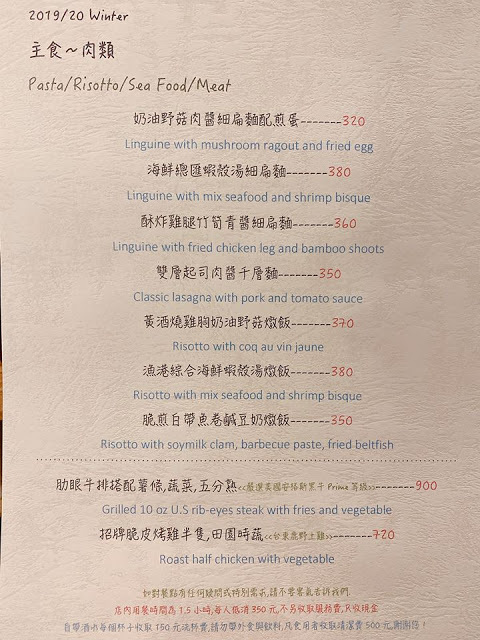 2019/20 Winter
主食～肉類
Pasta/Risotto/Sea Food/Meat
奶油野菇肉醬細扁麵配煎蛋-------320
Linguine with mushroom ragout and fried egg
海鮮總匯蝦殼湯細扁麵-------380
Linguine with mix seafood and shrimp bisque
酥炸雞腿竹筍青醬細扁麵-------360
Linguine with fried chicken leg and bamboo shoots
雙層起司肉醬千層麵-------350
Classic lasagna with pork and tomato sauce
黃酒燒雞胸奶油野菇燉飯-------370
Risotto with coq au vin jaune
漁港綜合海鮮蝦殼湯燉飯-------380
Risotto with mix seafood and shrimp bisque
脆煎白帶魚卷鹹豆奶燉飯-------350
Risotto with soymilk clam, barbecue paste, fried beltfish
肋眼牛排搭配薯條,蔬菜,五分熟<<嚴選美國安格斯黑牛 Prime 等級>>-------900
Grilled 10 oz U.S rib-eyes steak with fries and vegetable
招牌脆皮烤雞半隻,田園時蔬<<台東鹿野土雞>>-------720
Roast half chicken with vegetable
如對餐點有任何疑問或特別需求,請不要客氣告訴我們.
店內用餐時間為 1.5 小時,每人低消 350 元,不另收取服務費,只收現金
自帶酒水每個杯子收取 150 元洗杯費,請勿帶外食與飲料,凡食用者收取清潔費 500 元,謝謝您！